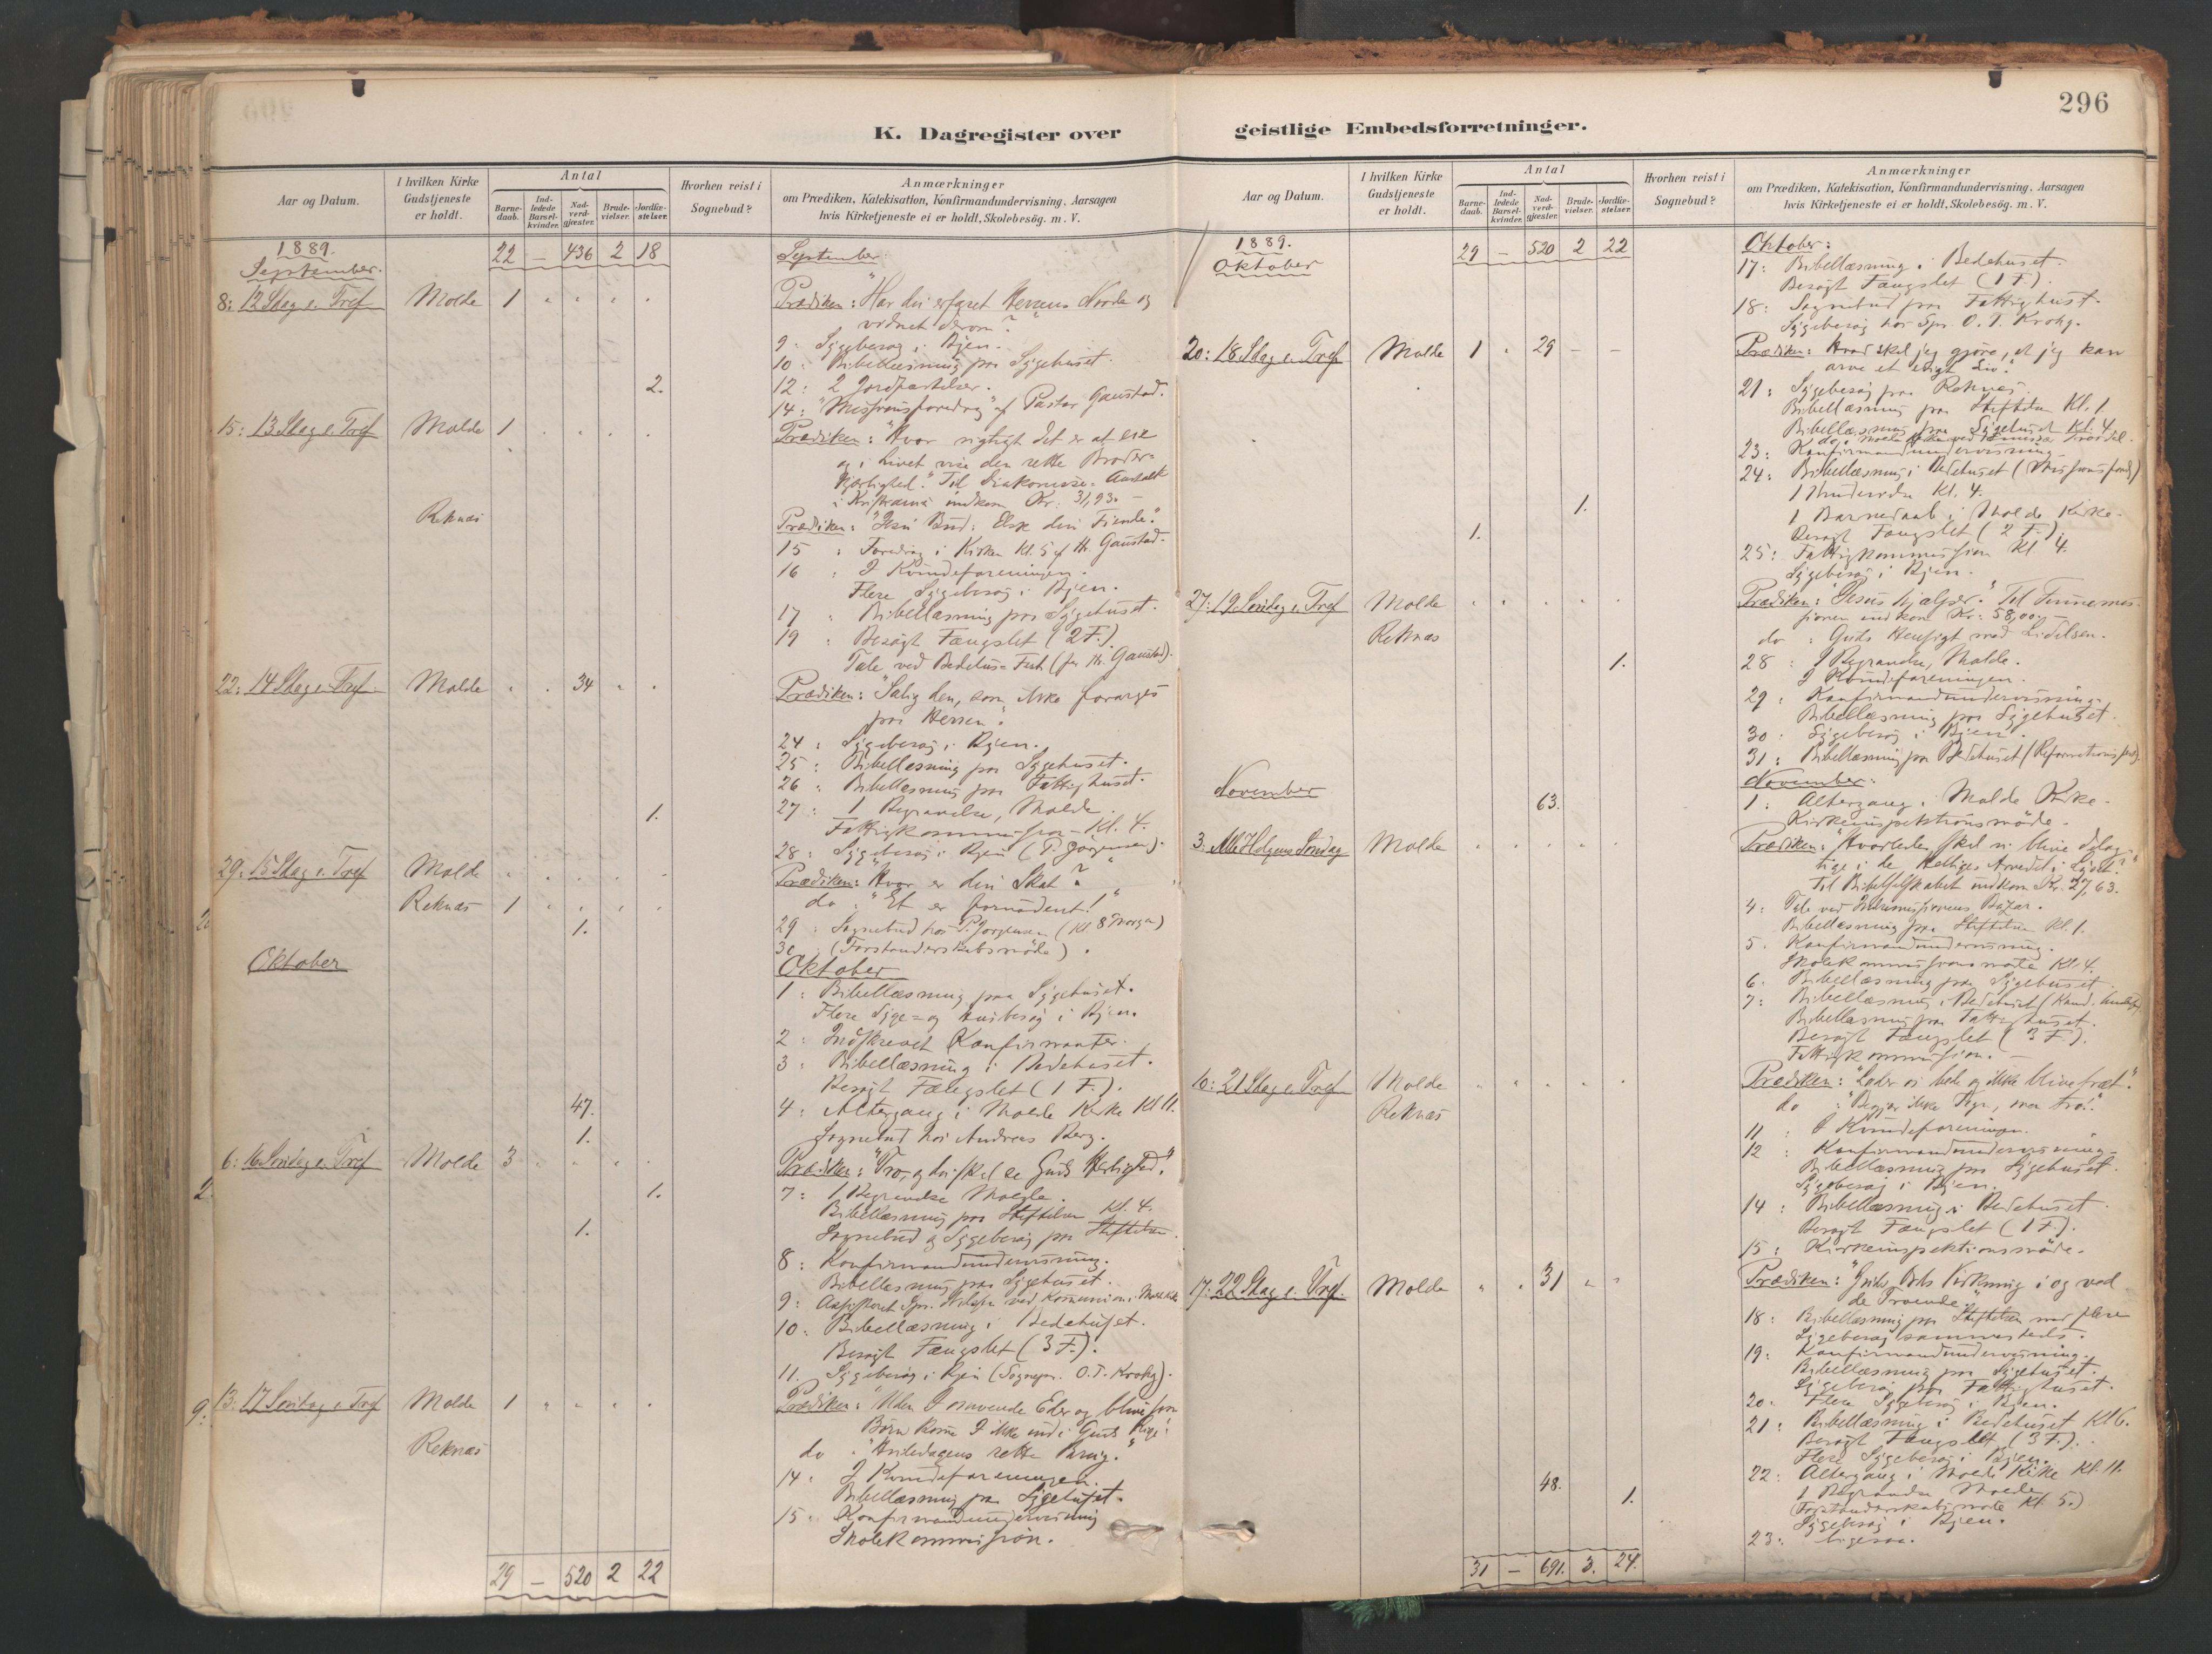 296
K. Dagregister over geistlige Embedsforretninger.
Aar og Datum.
I hvilken Kirke Gudstjeneste er holdt.
Antal
Barnedaab.
Indledede Barselkvinder.
Nadverdgjæster.
Brudevielser.
Jordfæstelser.
Hvorhen reist i Sognebud?
Anmærkninger
om Prædiken, Katekisation, Konfirmandundervisning, Aarsagen
hvis Kirketjeneste ei er holdt, Skolebesög. m. V.
1889. 22 — 436 2 18
September.
September.
8: 12 Sdag e. Tref Molde 1
Prædiken: "Har du erfaret Herrens Naade og
vidnet derom?"
9: Sygebesøg i Byen.
10: Bibellæsning paa Sygehuset.
12: 2 Jordfæstelser. 2.
14: "Missionsforedrag" af Pastor Gaustad.
15: 13 Sdag e. Tref Molde 1
Prædiken: "Hvor vigtigt det er at eie
og i Livet vise den rette Broder-
kjærlighed." Til Diakonisse-Anstalt
i Kristiania indkom Kr. 31,93.
Reknæs
Prædiken: "Jesu Bud: Elsk din Fiende."
15: Foredrag i Kirken Kl. 5 af Hr. Gaustad.
16: I Kvindeforeningen.
Flere Sygebesøg i Byen.
17: Bibellæsning paa Sygehuset.
19: Besøgt Fængslet (2 F.)
Tale ved Bedehus-Fest (for Hr. Gaustad).
22: 14 Sdag e. Tref. Molde 34
Prædiken: "Salig den, som ikke forarges
paa Herren."
24: Sygebesøg i Byen.
25: Bibellæsning paa Sygehuset.
26: Bibellæsning paa Fattighuset.
27: 1 Begravelse, Molde. 1.
Fattigkommission - Kl. 4.
28: Sygebesøg i Byen (P. Jørgensen).
29: 15 Sdag e. Tref Molde
Prædiken: "Hvor er din Skat?"
Reknæs 1
do: "Et er fornødent!"
29: Sognebud hos P. Jørgensen (Kl. 8 Morgen) 1.
30: (Forstanderskabsmøde).
Oktober
Oktober
1: Bibellæsning paa Sygehuset.
Flere Syge- og Husbesøg i Byen.
2: Indskrevet Konfirmanter.
3: Bibellæsning i Bedehuset.
Besøgt Fængslet (1 F.).
4: Altergang i Molde Kirke Kl 11. 47.
Sognebud hos Andreas Berg. 1.
6: 16 Søndag e. Tref Molde 3
Prædiken: "Tro, og du skal se Guds Herlighed."
7: 1 Begravelse Molde. 1.
Bibellæsning paa Stiftelsen Kl. 4.
Sognebud og Sygebesøg paa Stiftelsen. 1.
8: Konfirmandundervisning.
Bibellæsning paa Sygehuset.
9: Assisteret Spr. ved Kommunion i Molde Kirke
10: Bibellæsning i Bedehuset.
Besøgt Fængslet (3 F.).
11. Sygebesøg i Byen (Sognepr. O. T. Krohg).
13: 17 Søndag e. Tref Molde 1
Prædiken: "Uden I omvende Eder og blive som
Børn komme I ikke ind i Guds Rige!
Reknæs
do: "Hviledagens rette Brug."
14: I Kvindeforeningen.
Bibellæsning paa Sygehuset.
15: Konfirmandundervisning
Skolekommission.
29 — 520 2 22
Aar og Datum.
I hvilken Kirke Gudstjeneste er holdt.
Antal
Barnedaab.
Indledede Barselkvinder.
Nadverdgjæster.
Brudevielser.
Jordfæstelser.
Hvorhen reist i Sognebud?
Anmærkninger
om Prædiken, Katekisation, Konfirmandundervisning, Aarsagen
hvis Kirketjeneste ei er holdt, Skolebesög. m. V.
1889. 29 — 520 2 22
Oktober
Oktober:
17: Bibellæsning i Bedehuset.
Besøgt Fængslet (1 F.).
18: Sognebud paa Fattighust.
Sygebesøg hos Spr. O. T. Krohg.
20: 18 Sdag e. Tref Molde 1 29 — —
Prædiken: Hvad skal jeg gjøre, at jeg kan
arve et evigt Liv."
21: Sygebesøg paa Reknæs.
Bibellæsning paa Stiftelsen Kl. 1
Bibellæsning paa Sygehuset Kl. 4.
23: Konfirmandundervisning.
24: Bibellæsning i Bedehuset
Kl. 4. 1.
1 Barnedaab i Molde Kirke. 1.
Besøgt Fængslet (2 F.).
25: Fattigkommission Kl 4.
Sygebesøg i Byen.
27: 19 Søndag e. Tref Molde
Prædiken: "Jesus hjælper." Til Finnemis-
sionen indkom Kr. 58,00.
Reknæs
do: Guds Hensigt med Lidelsen.
28: 1 Begravelse, Molde. 1.
I Kvindeforeningen.
29: Konfirmandundervisning.
Bibellæsning paa Sygehuset.
30: Sygebesøg i Byen.
31: Bibellæsning paa Bedehuset
November
November:
1: Altergang i Molde Kirke. 63.
Kirkeinspektionsmøde.
3: Alle Helgens Søndag Molde
Prædiken: "Hvorledes skal vi blive delag-
tige i de Helliges Arvedel i Lyset?"
Til Bibelselskabet indkom Kr. 27,63.
4: Tale ved Indremissionens Bazar.
Bibellæsning paa Stiftelsen Kl. 1.
5. Konfirmandundervisning.
Skolekommissionsmøte Kl. 4.
6. Bibellæsning paa Sygehuset.
7: Bibellæsning i Bedehuset
Bibellæsning paa Fattighuset.
Besøgt Fængslet (3 F.).
Fattigkommission.
10: 21 Sdag e. Tref Molde
Prædiken: "Lader os bede og ikke blive træt."
Reknæs
do: "Begjær ikke Tegn, men tro!"
11: I Kvindeforeningen.
12: Konfirmandundervisning.
Bibellæsning paa Sygehuset.
Sygebesøg i Byen.
14: Bibellæsning i Bedehuset.
Besøgt Fængslet (1 F.).
15: Kirkeinspektionsmøde.
17: 22 Sdag e. Tref. Molde 31
Prædiken: "Guds Ords Virkning i og ved
de Troende."
18: Bibellæsning paa Stiftelsen med flere
Sygebesøg sammesteds.
19: Konfirmandundervisning.
Bibellæsning paa Sygehuset.
Sygebesøg paa Fattighuset.
20: Flere Sygebesøg i Byen.
21: Bibellæsning i Bedehuset Kl 6.
Besøgt Fængslet (3 F.).
Flere Sygebesøg i Byen.
22: Altergang i Molde Kirke Kl. 11. 48.
1 Begravelse Molde 1.
(Forstanderskabsmøte Kl. 5.)
Sygebesøg i Byen.
23: ligesaa.
31 — 691. 3. 24.